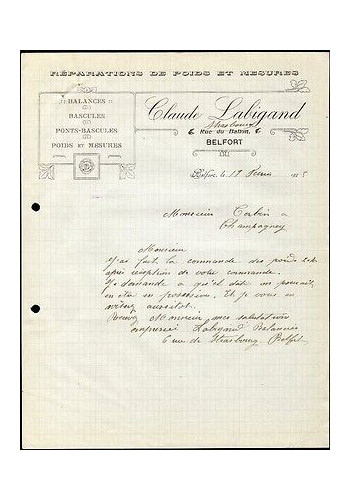 RÉPARATIONS DE POIDS ET MESURES
BALANCES
BASCULES
PONTS-BASCULES
POIDS ET MESURES
Claude Labigand
Strasbourg
6, Rue du Ballon, 6
BELFORT
Belfort, le 18 Février
Monsieur Corbin a
Champagney
Monsieur
J'ai fait la commande des poids
après réception de votre commande.
Je demande a qu'el doit on pourrait
en etre en possession. Et je vous en
aussitot.
Recevez Monsieur mes salutations
empressé Labigand Balancier
6 rue de Strasbourg Belfort